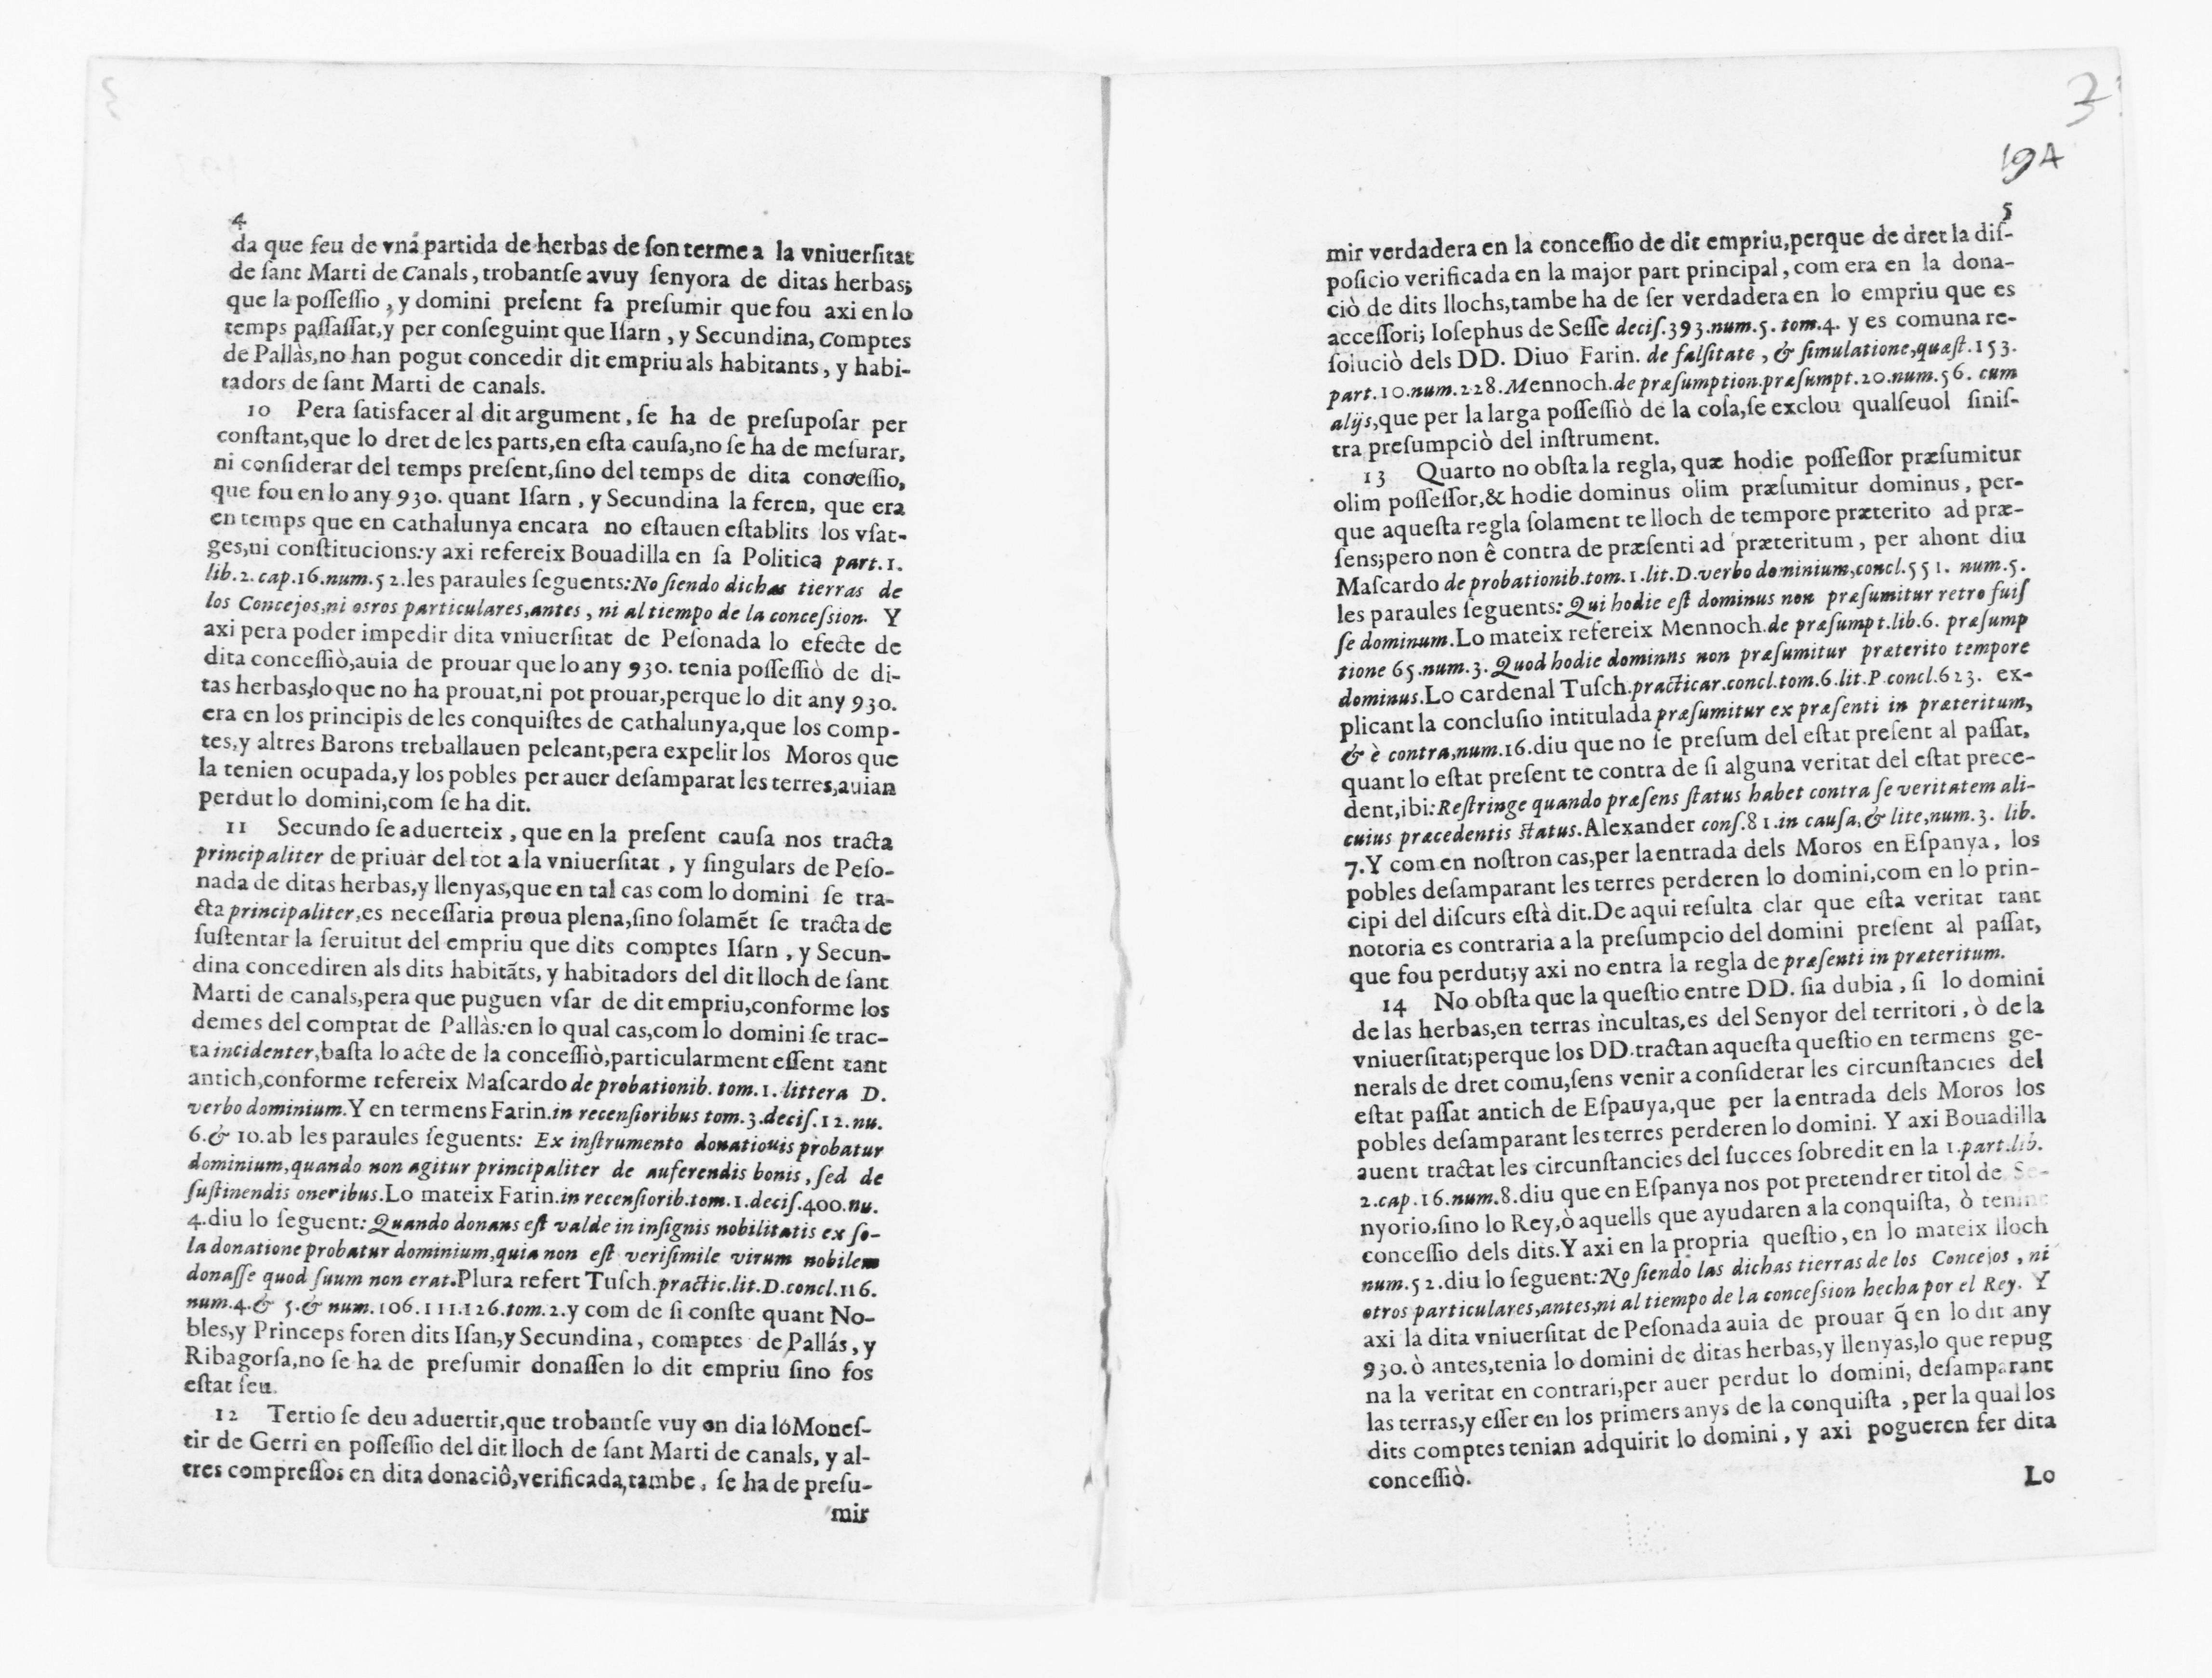 4
da que feu de vná partida de herbas de ſon terme a la vniuerſitat
de ſant Marti de Canals, trobantſe avuy ſenyora de ditas herbas;
que la poſſeſſio, y domini preſent fa preſumir que fou axi en lo
temps paſſaſſat, y per conſeguint que Iſarn, y Secundina, Comptes
de Pallàs, no han pogut concedir dit empriu als habitants, y habi-
tadors de ſant Marti de canals.
10 Pera ſatisfacer al dit argument, ſe ha de preſupoſar per
conſtant, que lo dret de les parts, en eſta cauſa, no ſe ha de meſurar,
ni conſiderar del temps preſent, ſino del temps de dita conceſſio,
que fou en lo any 930. quant Iſarn, y Secundina la feren, que era
en temps que en Cathalunya encara no eſtauen eſtablits los vſat-
ges, ni conſtitucions: y axi refereix Bouadilla en ſa Politica part. 1.
lib. 2. cap. 16. num. 52. les paraules ſeguents: No ſiendo dichas tierras de
los Concejos, ni osros particulares, antes, ni al tiempo de la conceſsion. Y
axi pera poder impedir dita vniuerſitat de Peſonada lo efecte de
dita conceſſiò, auia de prouar que lo any 930. tenia poſſeſſiò de di-
tas herbas, lo que no ha prouat, ni pot prouar, perque lo dit any 930.
era en los principis de les conquiſtes de Cathalunya, que los comp-
tes, y altres Barons treballauen peleant, pera expelir los Moros que
la tenien ocupada, y los pobles per auer deſamparat les terres, auian
perdut lo domini, com ſe ha dit.
11 Secundo ſe aduerteix, que en la preſent cauſa nos tracta
principaliter de priuar del tot a la vniuerſitat, y ſingulars de Peſo-
nada de ditas herbas, y llenyas, que en tal cas com lo domini ſe tra-
cta principaliter, es neceſſaria proua plena, ſino ſolamẽt ſe tracta de
ſuſtentar la ſeruitut del empriu que dits comptes Iſarn, y Secun-
dina concediren als dits habitãts, y habitadors del dit lloch de ſant
Marti de canals, pera que puguen vſar de dit empriu, conforme los
demes del comptat de Pallàs: en lo qual cas, com lo domini ſe trac-
ta incidenter, baſta lo acte de la conceſſiò, particularment eſſent tant
antich, conforme refereix Maſcardo de probationib. tom. 1. littera D.
verbo dominium. Y en termens Farin. in recenſioribus tom. 3. deciſ. 12. nu.
6. & 10. ab les paraules ſeguents: Ex inſtrumento donatiouis probatur
dominium, quando non agitur principaliter de auferendis bonis, ſed de
ſuſtinendis oneribus. Lo mateix Farin. in recenſiorib. tom. 1. deciſ. 400. nu.
4. diu lo ſeguent: Quando donans eſt valde in inſignis nobilitatis ex ſo-
la donatione probatur dominium, quia non eſt veriſimile virum nobilem
donaſſe quod ſuum non erat. Plura refert Tuſch. practic. lit. D. concl. 116.
num. 4. & 5. & num. 106. 111. 126. tom. 2. y com de ſi conſte quant No-
bles, y Princeps foren dits Iſan, y Secundina, comptes de Pallás, y
Ribagorſa, no ſe ha de preſumir donaſſen lo dit empriu ſino fos
eſtat ſeu.
12 Tertio ſe deu aduertir, que trobantſe vuy on dia lo Moneſ-
tir de Gerri en poſſeſſio del dit lloch de ſant Marti de canals, y al-
tres compreſſos en dita donaciô, verificada, tambe, ſe ha de preſu-
mir
3
194
5
mir verdadera en la conceſſio de dit empriu, perque de dret la diſ-
poſicio verificada en la major part principal, com era en la dona-
ciò de dits llochs, tambe ha de ſer verdadera en lo empriu que es
acceſſori; Ioſephus de Seſſe deciſ. 393. num. 5. tom. 4. y es comuna re-
ſoluciò dels DD. Diuo Farin. de falſitate, & ſimulatione, quæſt. 153.
part. 10. num. 228. Mennoch. de præſumption. præſumpt. 20. num. 56. cum
alijs, que per la larga poſſeſſiò de la coſa, ſe exclou qualſeuol ſiniſ-
tra preſumpciò del inſtrument.
13 Quarto no obſta la regla, quæ hodie poſſeſſor præſumitur
olim poſſeſſor, & hodie dominus olim præſumitur dominus, per-
que aqueſta regla ſolament te lloch de tempore præterito ad præ-
ſens; pero non ê contra de præſenti ad præteritum, per ahont diu
Maſcardo de probationib. tom. 1. lit. D. verbo dominium, concl. 551. num. 5.
les paraules ſeguents: Qui hodie eſt dominus non præſumitur retro fuiſ
ſe dominum. Lo mateix refereix Mennoch. de præſumpt. lib. 6. præſump
tione 65. num. 3. Quod hodie dominns non præſumitur præterito tempore
dominus. Lo cardenal Tuſch. practicar. concl. tom. 6. lit. P. concl. 623. ex-
plicant la concluſio intitulada præſumitur ex præſenti in præteritum,
& è contra, num. 16. diu que no ſe preſum del eſtat preſent al paſſat,
quant lo eſtat preſent te contra de ſi alguna veritat del eſtat prece-
dent, ibi: Reſtringe quando præſens ſtatus habet contra ſe veritatem ali-
cuius præcedentis ſtatus. Alexander conſ. 81. in cauſa, & lite, num. 3. lib.
7. Y com en noſtron cas, per la entrada dels Moros en Eſpanya, los
pobles deſamparant les terres perderen lo domini, com en lo prin-
cipi del diſcurs eſtà dit. De aqui reſulta clar que eſta veritat tant
notoria es contraria a la preſumpcio del domini preſent al paſſat,
que fou perdut; y axi no entra la regla de præſenti in præteritum.
14 No obſta que la queſtio entre DD. ſia dubia, ſi lo domini
de las herbas, en terras incultas, es del Senyor del territori, ò de la
vniuerſitat; perque los DD. tractan aqueſta queſtio en termens ge-
nerals de dret comu, ſens venir a conſiderar les circunſtancies del
eſtat paſſat antich de Eſpauya, que per la entrada dels Moros los
pobles deſamparant les terres perderen lo domini. Y axi Bouadilla
auent tractat les circunſtancies del ſucces ſobredit en la 1. part. lib.
2. cap. 16. num. 8. diu que en Eſpanya nos pot pretendrer titol de Se-
nyorio, ſino lo Rey, ò aquells que ayudaren a la conquiſta, ò tenint
conceſſio dels dits. Y axi en la propria queſtio, en lo mateix lloch
num. 52. diu lo ſeguent: No ſiendo las dichas tierras de los Concejos, ni
otros particulares, antes, ni al tiempo de la conceſsion hecha por el Rey. Y
axi la dita vniuerſitat de Peſonada auia de prouar q̃ en lo dit any
930. ò antes, tenia lo domini de ditas herbas, y llenyas, lo que repug
na la veritat en contrari, per auer perdut lo domini, deſamparant
las terras, y eſſer en los primers anys de la conquiſta, per la qual los
dits comptes tenian adquirit lo domini, y axi pogueren fer dita
conceſſiò.
Lo